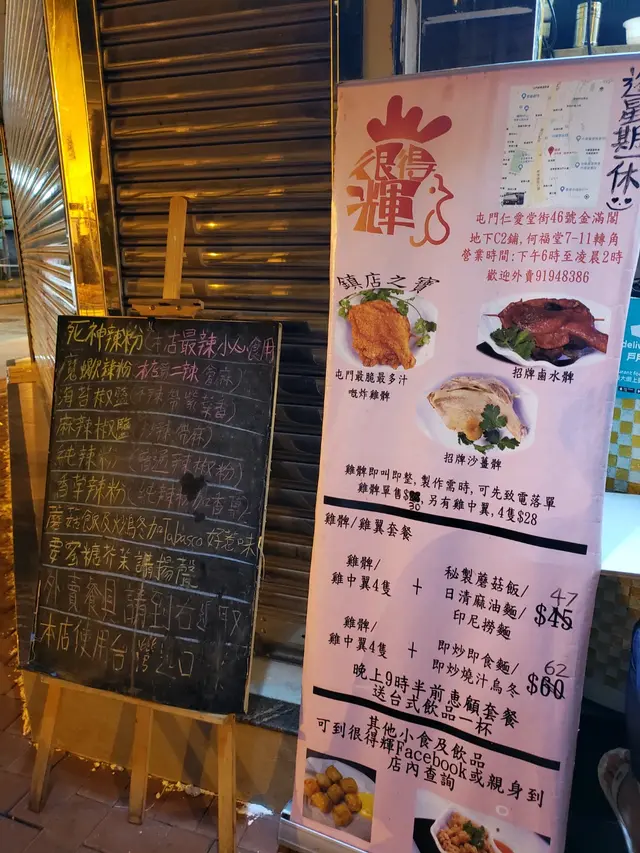 死神辣粉(本店最辣小心食用
魔燉辣粉 本店第二辣
海苔椒鹽
麻辣椒鹽
純辣粉(普通辣椒粉)
香草辣粉
蘑菇飯及炒烏冬加Tabasco 好惹味
要蜜糖芥茉請揚聲
外賣餐具請到右邊取
本店使用台灣
逢星期一休
很得輝
屯門仁愛堂街46號金滿閣
地下C2鋪,何福堂7-11轉角
營業時間:下午6時至凌晨2時
歡迎外賣91948386
鎮店之寶
屯門最脆最多汁
嘅炸雞髀
招牌鹵水髀
招牌沙薑髀
雞髀即叫即整,製作需時,可先致電落單
雞髀單售$30,另有雞中翼,4隻$28
雞髀/雞翼套餐
雞髀/
雞中翼4隻
+
秘製蘑菇飯/
日清麻油麵/
印尼撈麵
47
$45
雞髀/
雞中翼4隻
+
即炒即食麵/
即炒燒汁烏冬
62
$60
晚上9時半前惠顧套餐
送台式飲品一杯
其他小食及飲品
可到很得輝Facebook或親身到
店內查詢